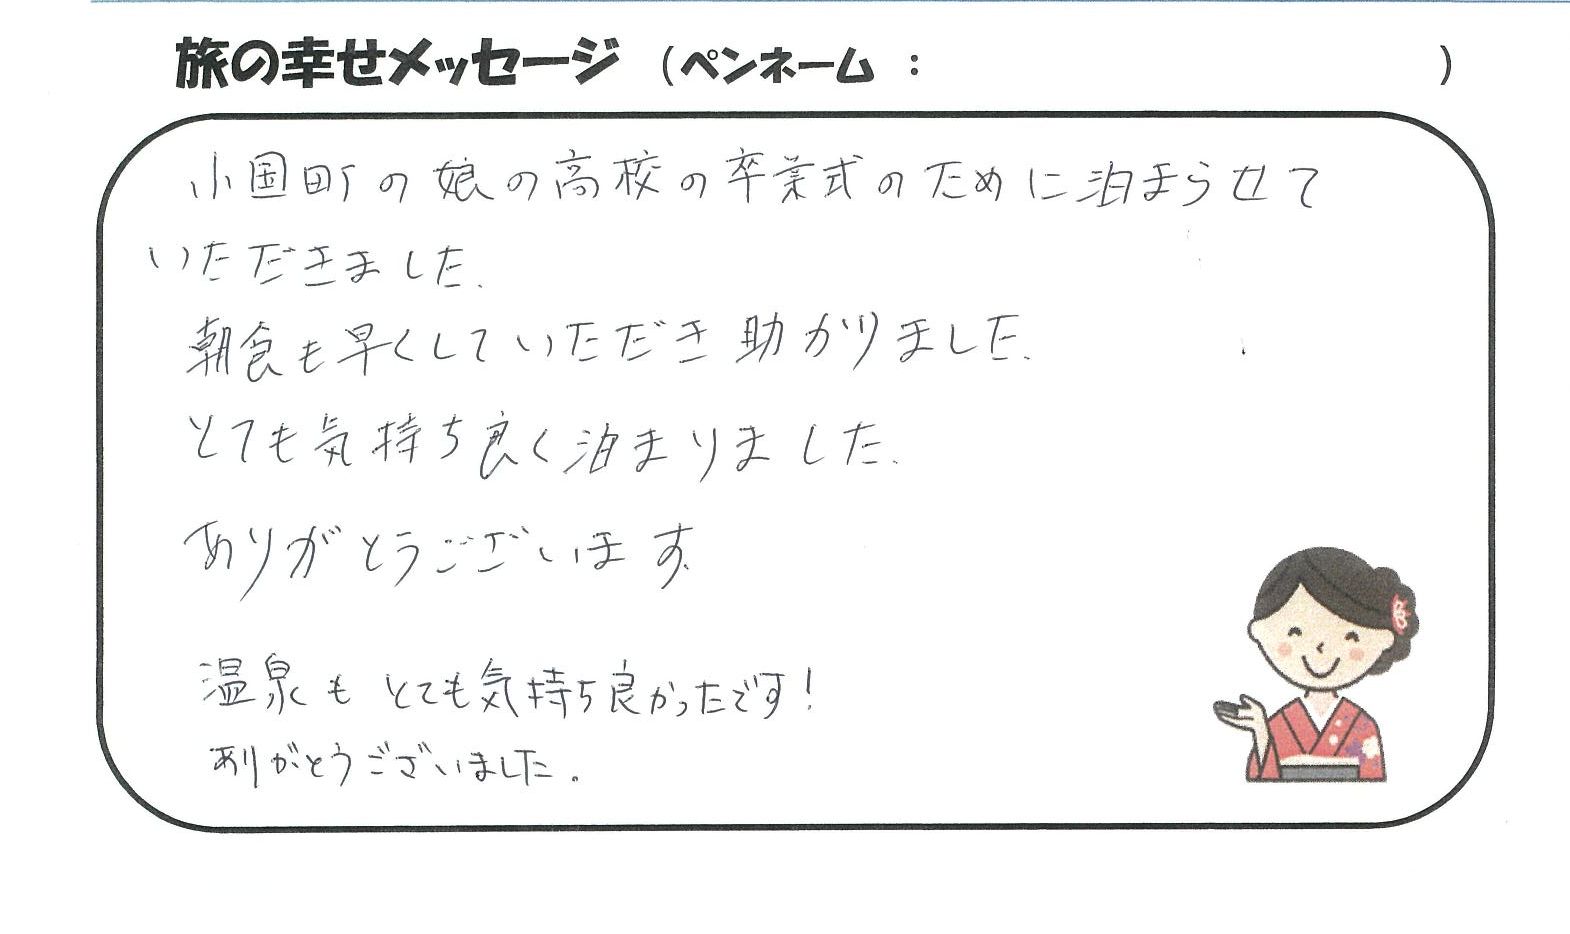 旅の幸せメッセージ（ペンネーム：　　　　　）
小国町の娘の高校の卒業式のために泊まらせて
いただきました.
朝食も早くしていただき助かりました.
とても気持ち良く泊まりました.
ありがとうございます.
温泉も とても気持ち良かったです！
ありがとうございました。